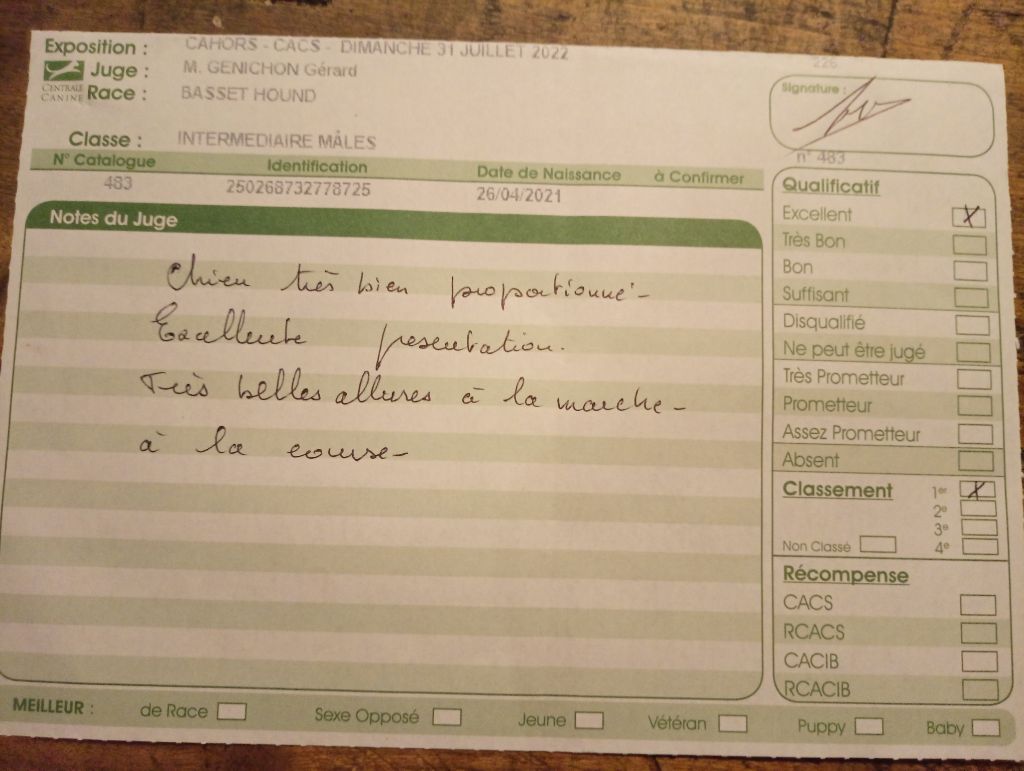 Exposition : CAHORS - CACS - DIMANCHE 31 JUILLET 2022
226
CENTRALE CANINE
Juge : M. GENICHON Gérard
Race : BASSET HOUND
Signature :
Classe : INTERMEDIAIRE MÂLES
n° 483
N° Catalogue Identification Date de Naissance à Confirmer
483 250268732778725 26/04/2021
Notes du Juge
Chien très bien proportionné-
Excellente presentation.
Très belles allures à la marche-
à la course-
Qualificatif
Excellent X
Très Bon
Bon
Suffisant
Disqualifié
Ne peut être jugé
Très Prometteur
Prometteur
Assez Prometteur
Absent
Classement 1er X
2e
3e
Non Classé 4e
Récompense
CACS
RCACS
CACIB
RCACIB
MEILLEUR : de Race Sexe Opposé Jeune Vétéran Puppy Baby